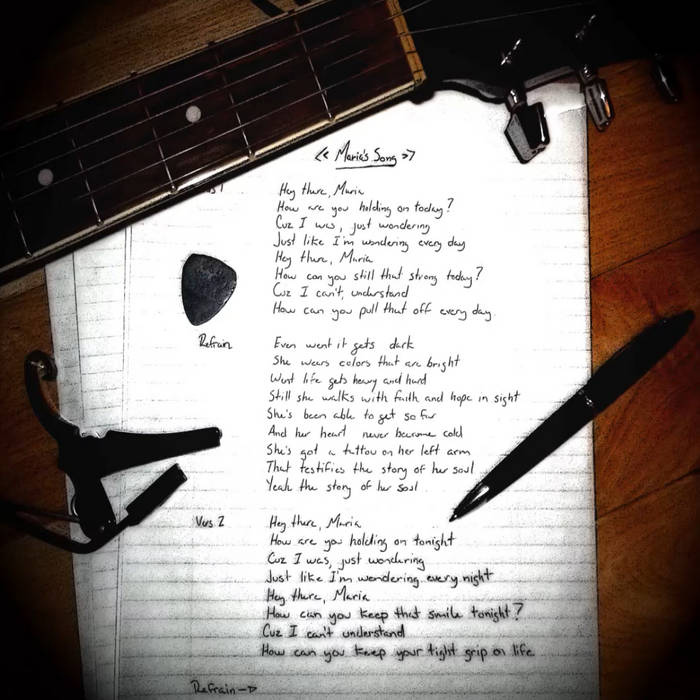 << Maria's Song >>
Hey there, Maria
How are you holding on today?
Cuz I was, just wondering
Just like I'm wondering every day
Hey there, Maria
How can you still that strong today?
Cuz I can't, understand
How can you pull that off every day.
Refrain
Even went it gets dark
She wears colors that are bright
Went life gets heavy and hard
Still she walks with faith and hope in sight
She's been able to get so far
And her heart never became cold
She's got a tattou on her left arm
That testifies the story of her soul
Yeah the story of her soul
Vers 2
Hey there, Maria
How are you holding on tonight
Cuz I was, just wondering
Just like I'm wondering every night
Hey there, Maria
How can you keep that smile tonight?
Cuz I can't understand
How can you keep your tight grip on life
Refrain →